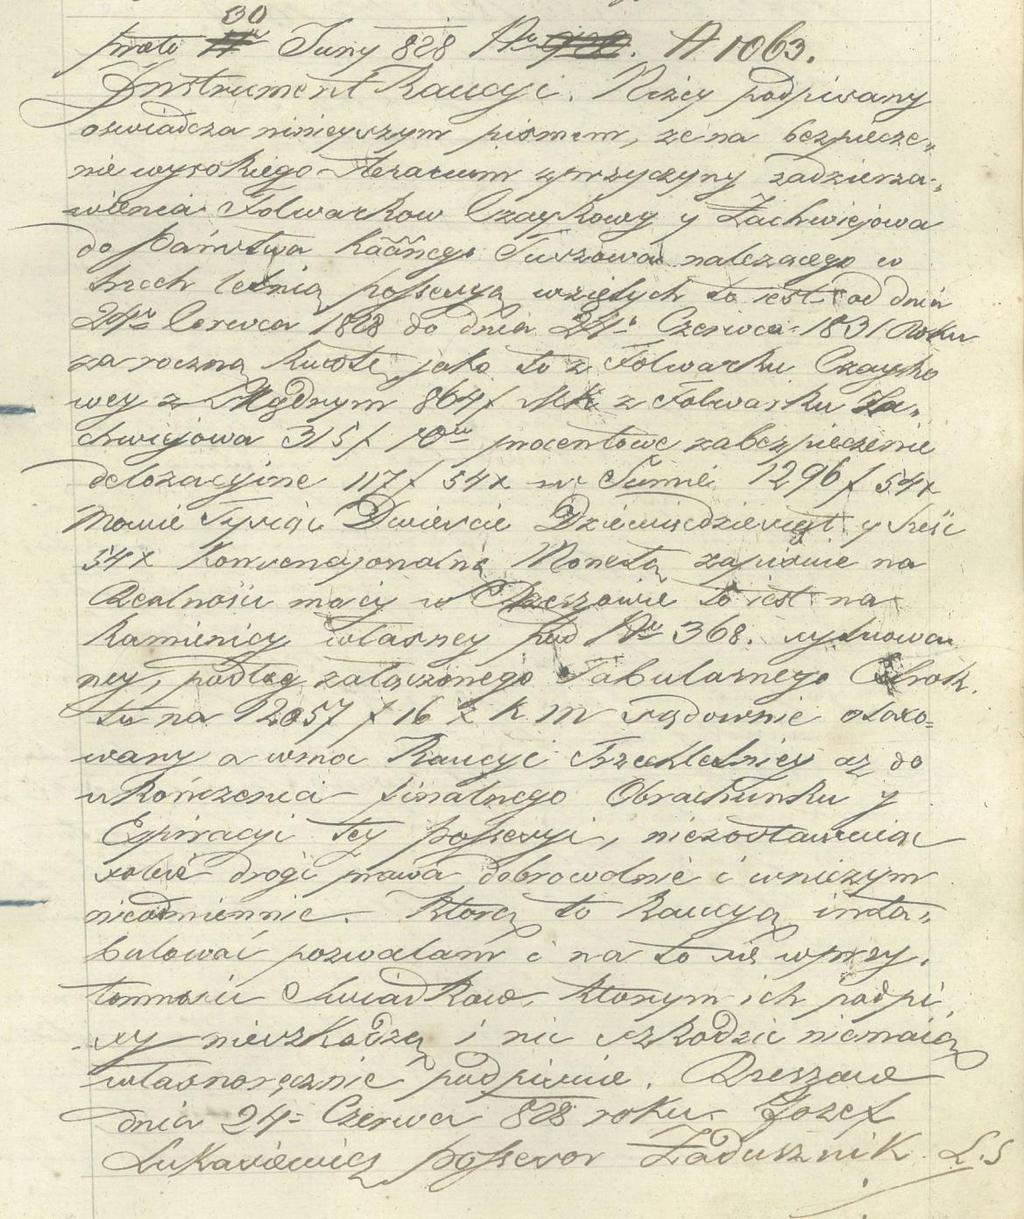 30
praeto Juny 828 Nro A 1063.
Instrument Kaucyi. Niżej podpisany
oswiadcza ninieyszym pismem, że na bezpiecze„
nie wysokiego Aerarium z przyczyny zadzierża„
wienia Folwarkow Czaykowy y Zachwiejowa
do Państwa Kaalnego Tuszowa należącego w
trzech letnią possessyą wziętych to iest od dnia
24go Czerwca 1828 do dnia 24go Czerwca 1831 Roku
za roczną kwotę jako to z Folwarku Czayko
wey z Młynem 864 f MK z Folwarku Za„
chwiejowa 315 f 10cio procentowe zabezpieczenie
delozacyine 117 f 54 x w Summie 1296 f 54 x
mowie Tysiąc Dwieście Dziewiędziesiąt y sześć
54 x Konwencyonalną Monetą zapisuie na
Realności mojey w Rzeszowie to iest na
Kamienicy własney pod Nro 368. sytuowa
ney, podług załączonego Tabularnego Extrak
tu na 12057 f 16 x K M sądownie otaxo=
waney a w moc Kaucyi Trzechletniey aż do
ukończenia finalnego Obrachunku y
Expiracyi tey possesyi, niezostawuiąc
sobie drogi prawa dobrowolnie i wniczym
nieodmiennie. Którą to Kaucyą inta„
bulować pozwalam i na to się w przy„
tomności Swiadkow, ktorym ich podpi
sy nieszkodzą i nic szkodzić niemaią
własnoręcznie podpisuie. Rzeszow
dnia 24 Czerwca 828 roku Jozef
Łukasiewicz possesor Zadusznik L.S